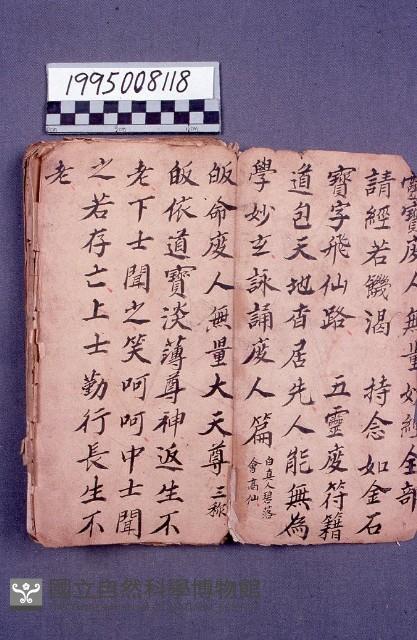 1995008118
靈寶度人無量妙經金奇
請經若饑渴 持念如金石
寶字飛仙路 五靈度符籍
道包天地杳居先人能無為
學妙玄詠誦度人篇 白真人碧落
會高仙
皈命度人無量大天尊 三稱
皈依道寶淡薄尊神返生不
老下士聞之笑呵呵中士聞
之若存亡上士勤行長生不
老
國立自然科學博物館